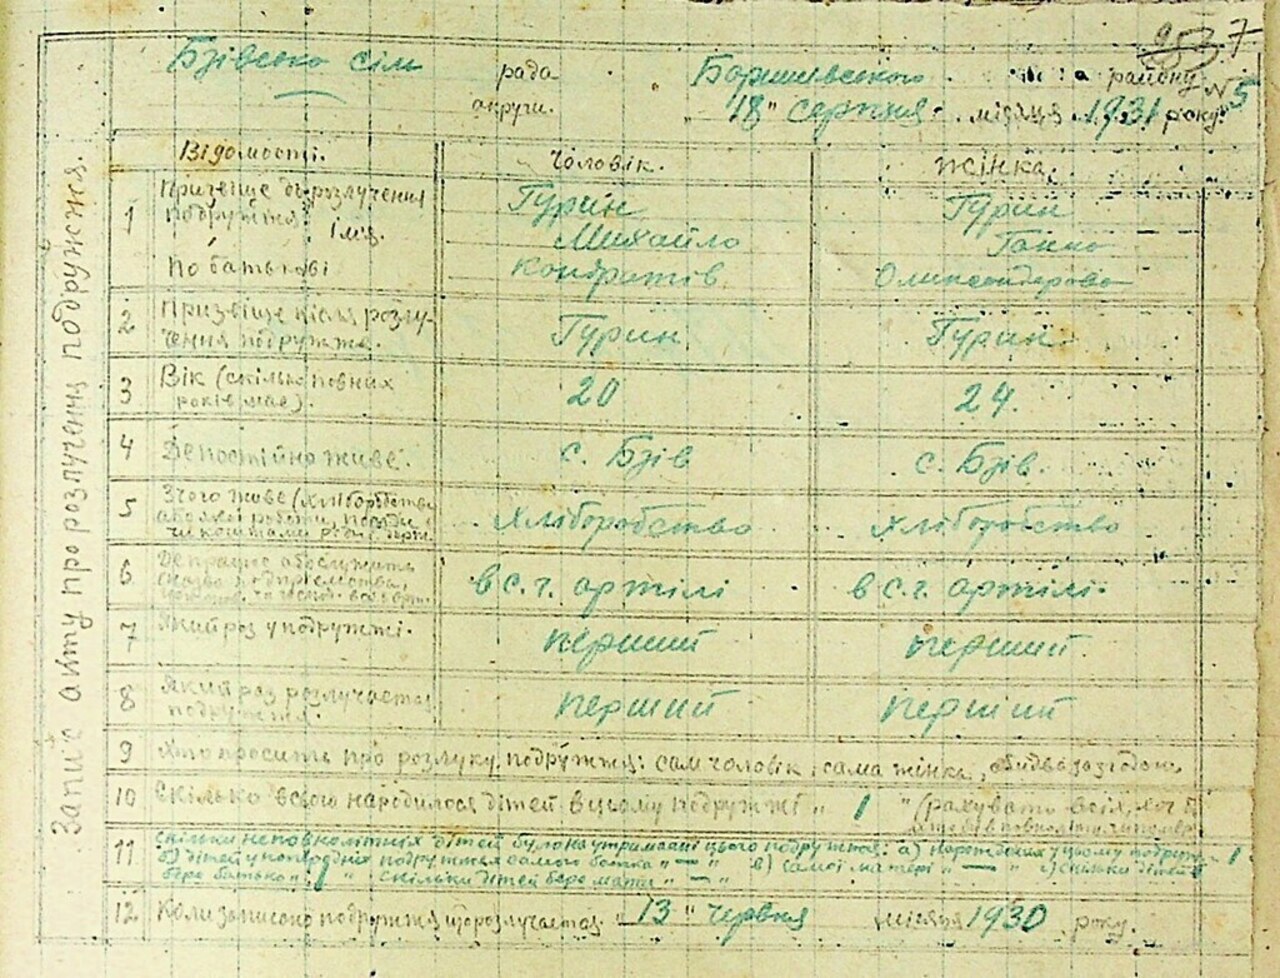 253 7
Бзівсько сіль рада Баришівського району № 5
округи. "18" серпня місяця 1931 року.
Запис акту про розлучення подружжя.
Відомості. Чоловік. Жінка.
1 Призвіще до розлучення Гурин Гурин
подружжя: ім'я. Михайло Ганна
по батькові Кондратів Олександрова
2 Призвіще після розлу-
чення подружжя. Гурин Гурин
3 Вік (скілько повних
років має). 20 24.
4 Де постійно живе. с. Бзів с. Бзів.
5 З чого живе (хліборобство Хліборобство хліборобство
6 Де працює або служить
в с.г. артілі в с.г. артілі.
7 Який раз у подружжі. перший перший
8 Який раз розлучається
подружжя. перший перший
9 Хто просить про розлуку подружжя: сам чоловік, сама жінка, обидва за згодою
10 Скілько всього народилося дітей в цьому подружжі " 1 " (рахувати всіх,
11 скільки неповнолітніх дітей було на утриманні цього подружжя: а) народжених у цьому подруж. 1
б) дітей у попередніх подружжях самого батька " — " в) самої матері " — " г) скільки дітей
бере батько " 1 " скільки дітей бере мати " — "
12 Коли записано подружжя що розлучається. "13" червня місяця 1930 року.